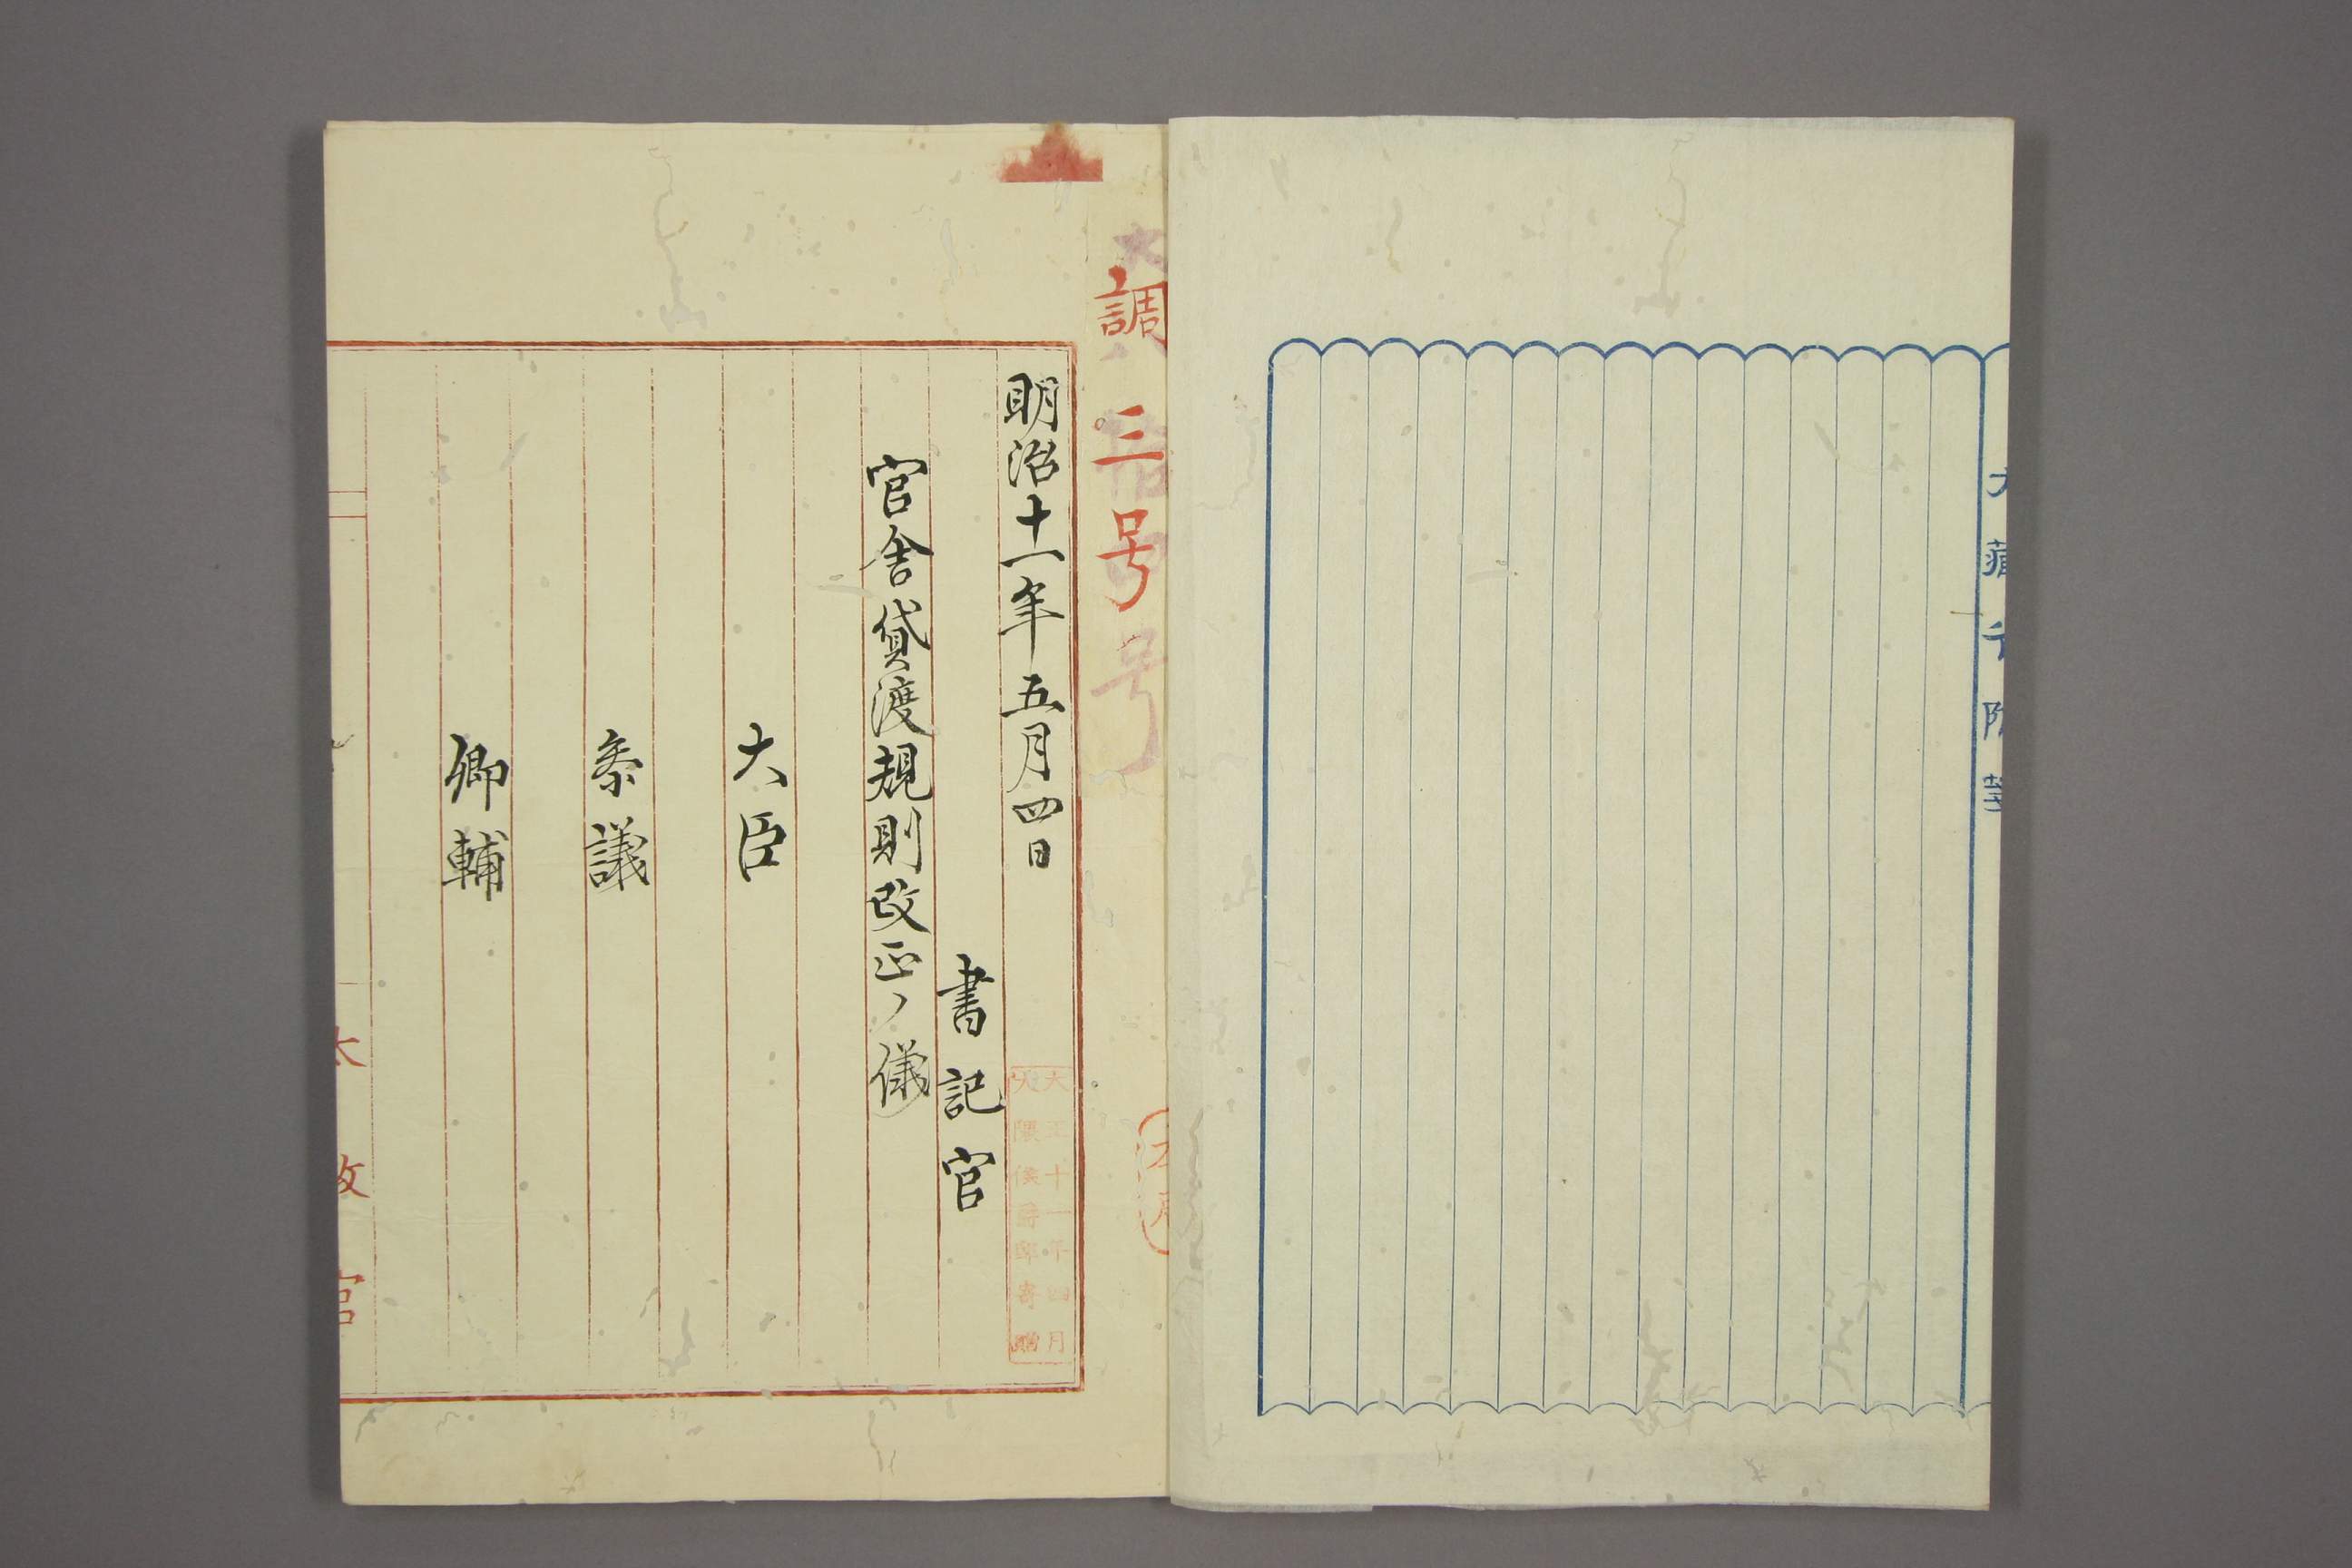 調三号
明治十一年五月四日
書記官
官舎貸渡規則改正ノ儀
大臣
参議
卿輔
大正十一年四月
大隈侯爵邸寄贈
太政官